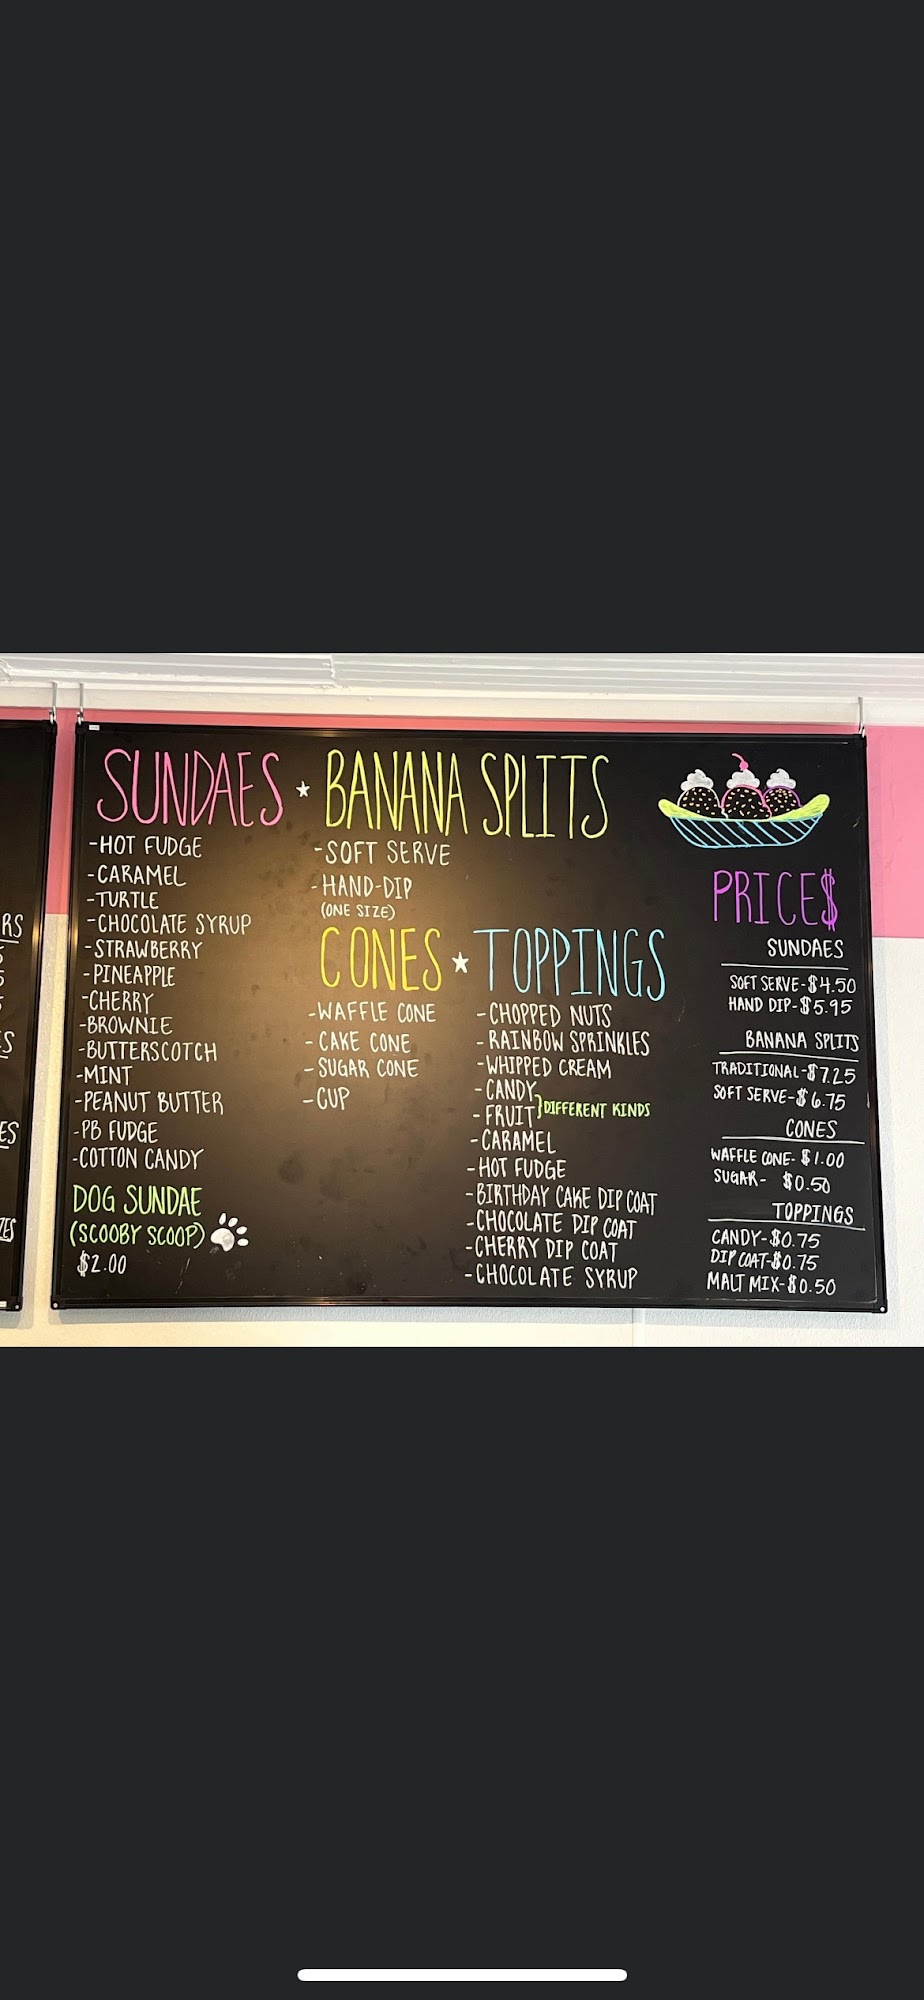 SUNDAES ★ BANANA SPLITS
-HOT FUDGE
-CARAMEL
-TURTLE
-CHOCOLATE SYRUP
-STRAWBERRY
-PINEAPPLE
-CHERRY
-BROWNIE
-BUTTERSCOTCH
-MINT
-PEANUT BUTTER
-PB FUDGE
-COTTON CANDY
DOG SUNDAE
(SCOOBY SCOOP)
$2.00
-SOFT SERVE
-HAND-DIP
(ONE SIZE)
CONES ★ TOPPINGS
-WAFFLE CONE
-CAKE CONE
-SUGAR CONE
-CUP
-CHOPPED NUTS
-RAINBOW SPRINKLES
-WHIPPED CREAM
-CANDY
-FRUIT } DIFFERENT KINDS
-CARAMEL
-HOT FUDGE
-BIRTHDAY CAKE DIP COAT
-CHOCOLATE DIP COAT
-CHERRY DIP COAT
-CHOCOLATE SYRUP
PRICE$
SUNDAES
SOFT SERVE-$4.50
HAND DIP-$5.95
BANANA SPLITS
TRADITIONAL-$7.25
SOFT SERVE-$6.75
CONES
WAFFLE CONE-$1.00
SUGAR- $0.50
TOPPINGS
CANDY-$0.75
DIP COAT-$0.75
MALT MIX-$0.50
RS
S
ES
ZES